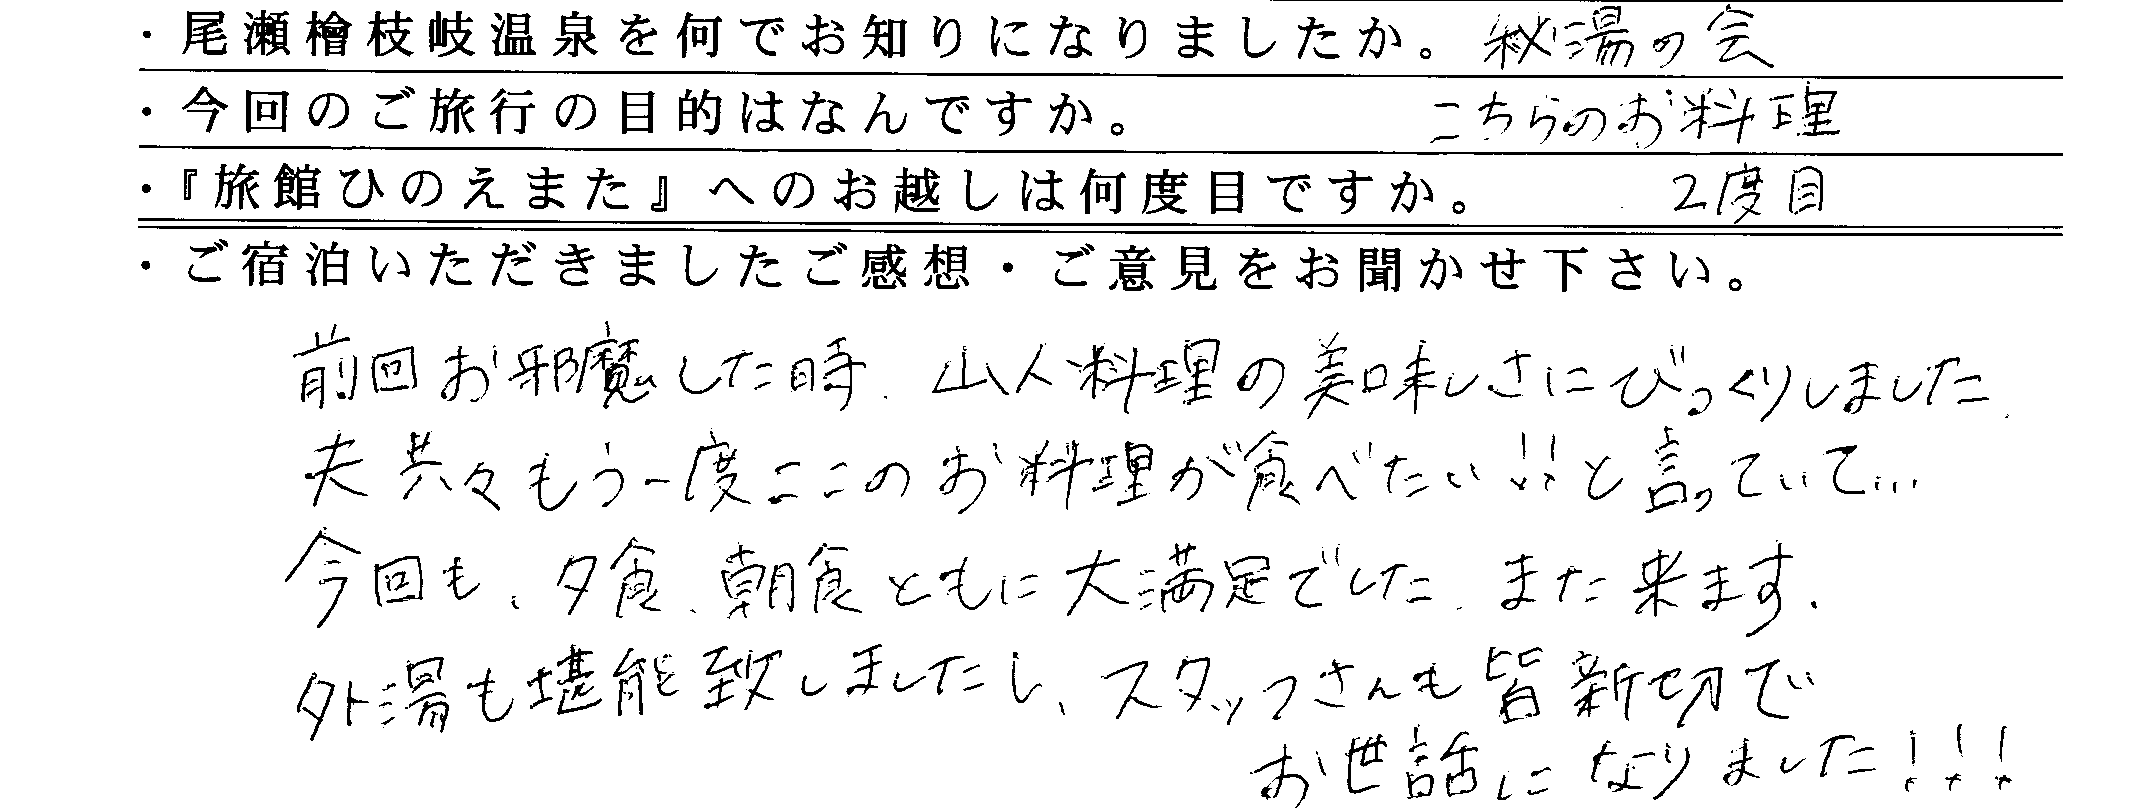 ・尾瀬檜枝岐温泉を何でお知りになりましたか。 秘湯の会
・今回のご旅行の目的はなんですか。 こちらのお料理
・『旅館ひのえまた』へのお越しは何度目ですか。 2度目
・ご宿泊いただきましたご感想・ご意見をお聞かせ下さい。
前回お邪魔した時、山人料理の美味しさにびっくりしました。
夫共々もう一度ここのお料理が食べたい!!と言っていて…
今回も、夕食、朝食ともに大満足でした。また来ます。
外湯も堪能致しましたし、スタッフさんも皆新切で
お世話になりました!!!